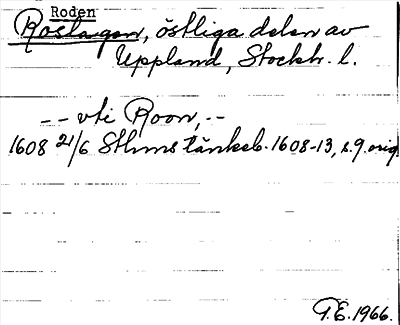 Roden
Roslagen, östliga delen av
Uppland, Stockh. l.
-- vti Roon, --
1608 21/6 Sthms tänkeb. 1608-13, s. 9. orig.
P.E. 1966.